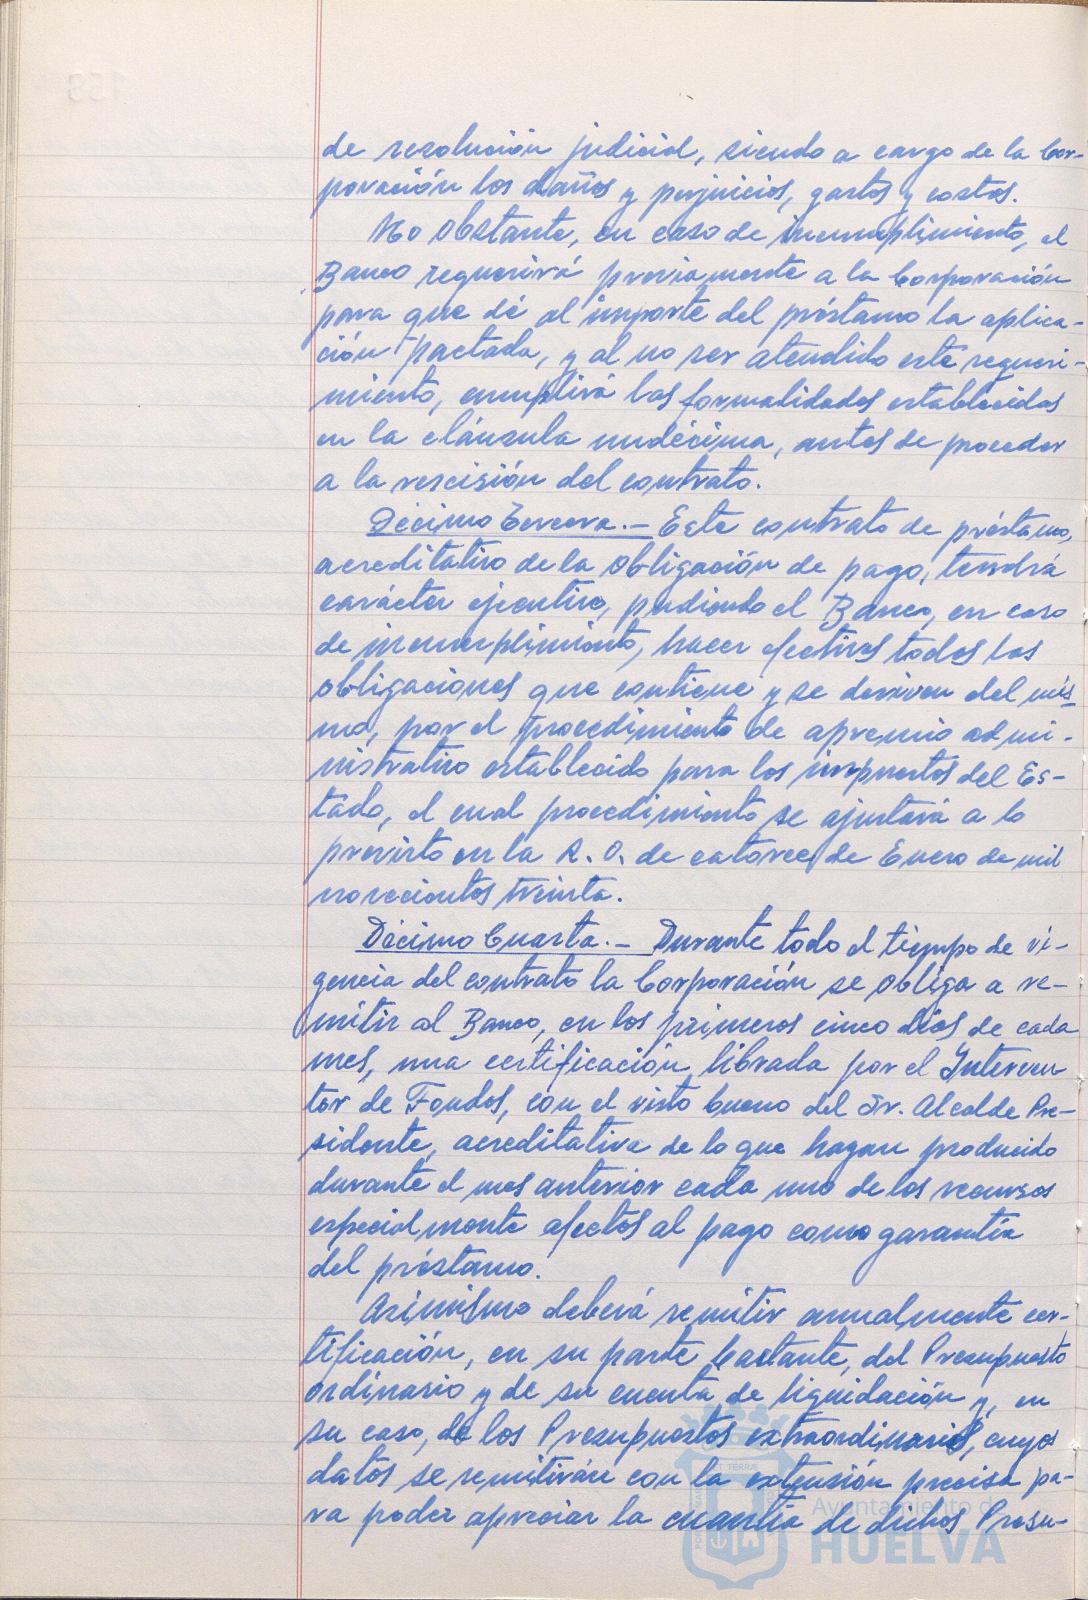 de resolución judicial, siendo a cargo de la Cor-
poración los daños y perjuicios, gastos y costas.
No obstante, en caso de incumplimiento, el
Banco requerirá previamente a la Corporación
para que dé al importe del préstamo la aplica-
ción pactada, y al no ser atendido este requeri-
miento, cumplirá las formalidades establecidas
en la cláusula undécima, antes de proceder
a la rescisión del contrato.
Décimo Tercera.- Este contrato de préstamo,
acreditativo de la obligación de pago, tendrá
carácter ejecutivo, pudiendo el Banco, en caso
de incumplimiento, hacer efectivas todas las
obligaciones que contiene y se deriven del mis-
mo, por el procedimiento de apremio admi-
nistrativo establecido para los impuestos del Es-
tado, el cual procedimiento se ajustará a lo
previsto en la R. O. de catorce de Enero de mil
novecientos treinta.
Décimo Cuarta.- Durante todo el tiempo de vi-
gencia del contrato la Corporación se obliga a re-
mitir al Banco, en los primeros cinco días de cada
mes, una certificación librada por el Interven
tor de Fondos, con el visto bueno del Sr. Alcalde Pre-
sidente, acreditativa de lo que hayan producido
durante el mes anterior cada uno de los recursos
especialmente afectos al pago como garantía
del préstamo.
Asimismo deberá remitir anualmente cer-
tificación, en su parte bastante, del Presupuesto
ordinario y de su cuenta de liquidación y, en
su caso, de los Presupuestos extraordinarios, cuyos
datos se remitirán con la extensión precisa pa-
ra poder apreciar la cuantía de dichos Presu-
Ayuntamiento de
HUELVA